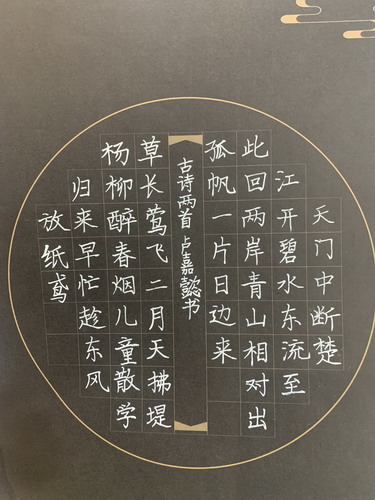 天门中断楚
江开碧水东流至
此回两岸青山相对出
孤帆一片日边来
古诗两首 卢嘉懿书
草长莺飞二月天拂堤
杨柳醉春烟儿童散学
归来早忙趁东风
放纸鸢